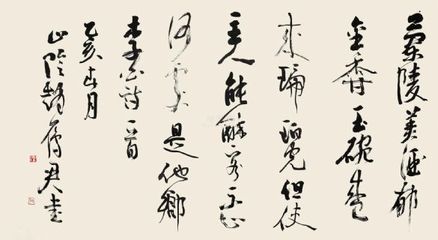 蘭陵美酒郁
金香玉碗盛
來琥珀光但使
主人能醉客不知
何處是他鄉
李白詩一首
己亥正月
山陰趙雁君書